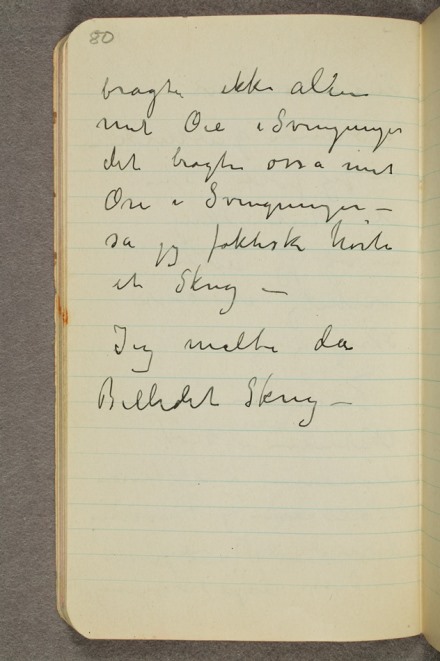 80
bragte ikke alene
mit Øie i Svingninger
det bragte osså mit
Øre i Svingninger –
så jeg faktiske hørte
et Skrig –
Jeg malte da
Billedet Skrig –